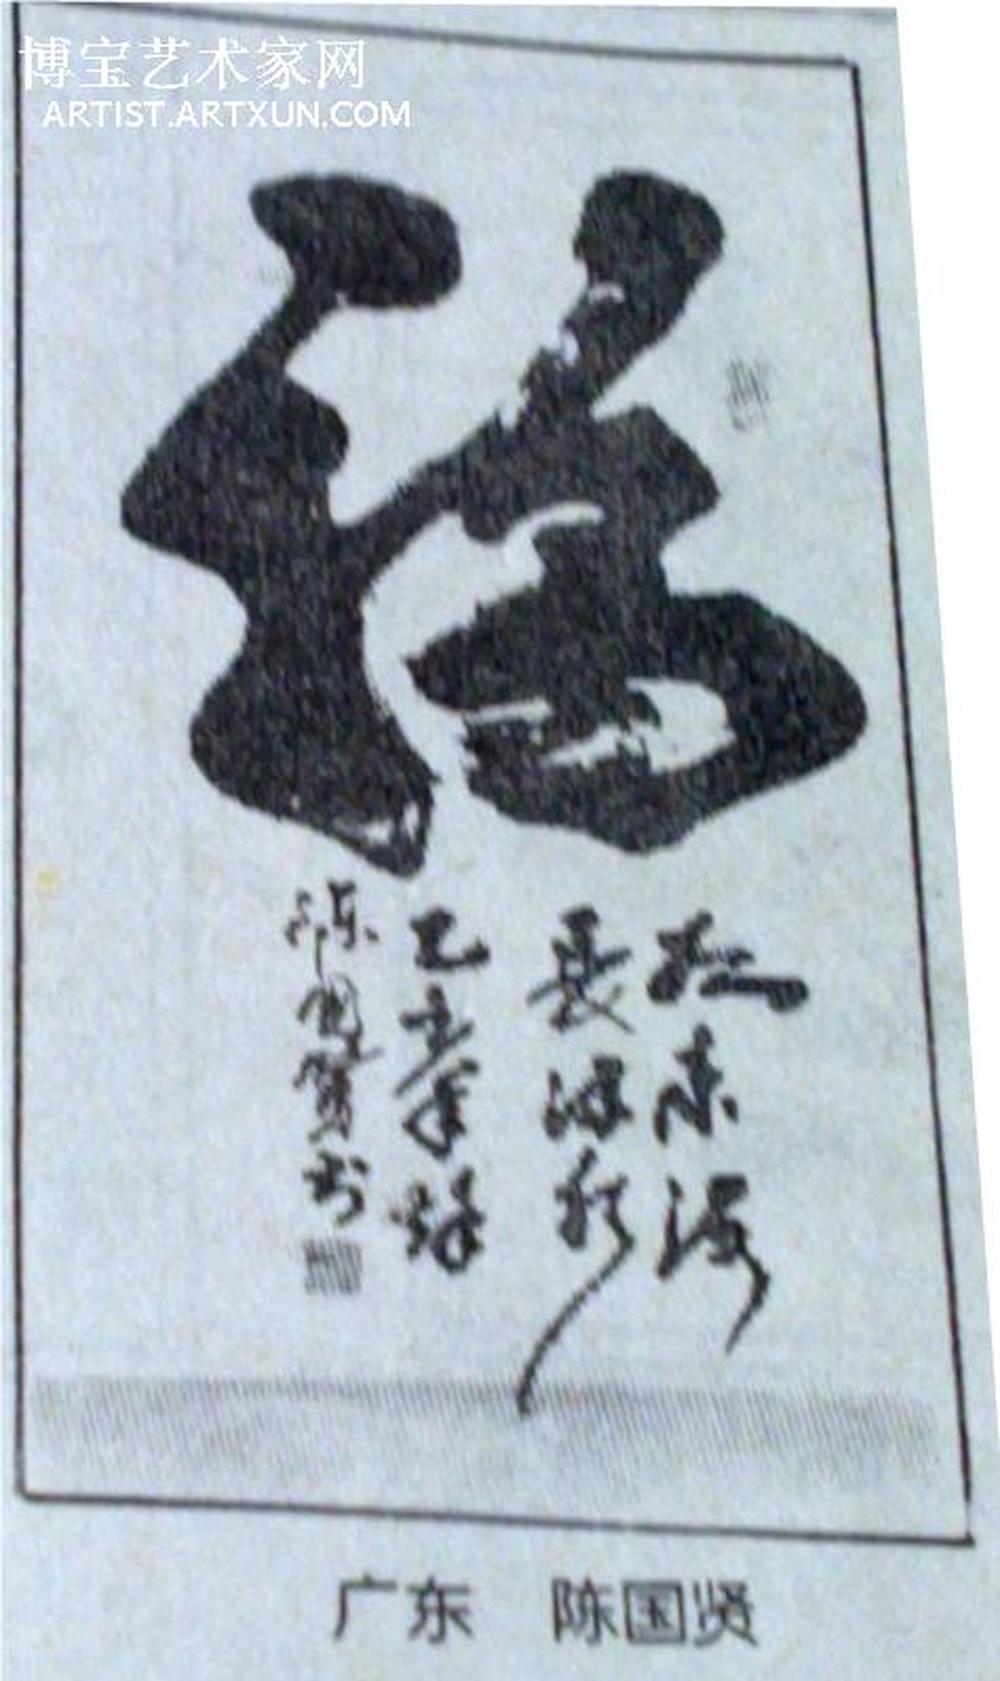 博宝艺术家网
ARTIST.ARTXUN.COM
福
如东海
長流水
陈国贤书
广东 陈国贤